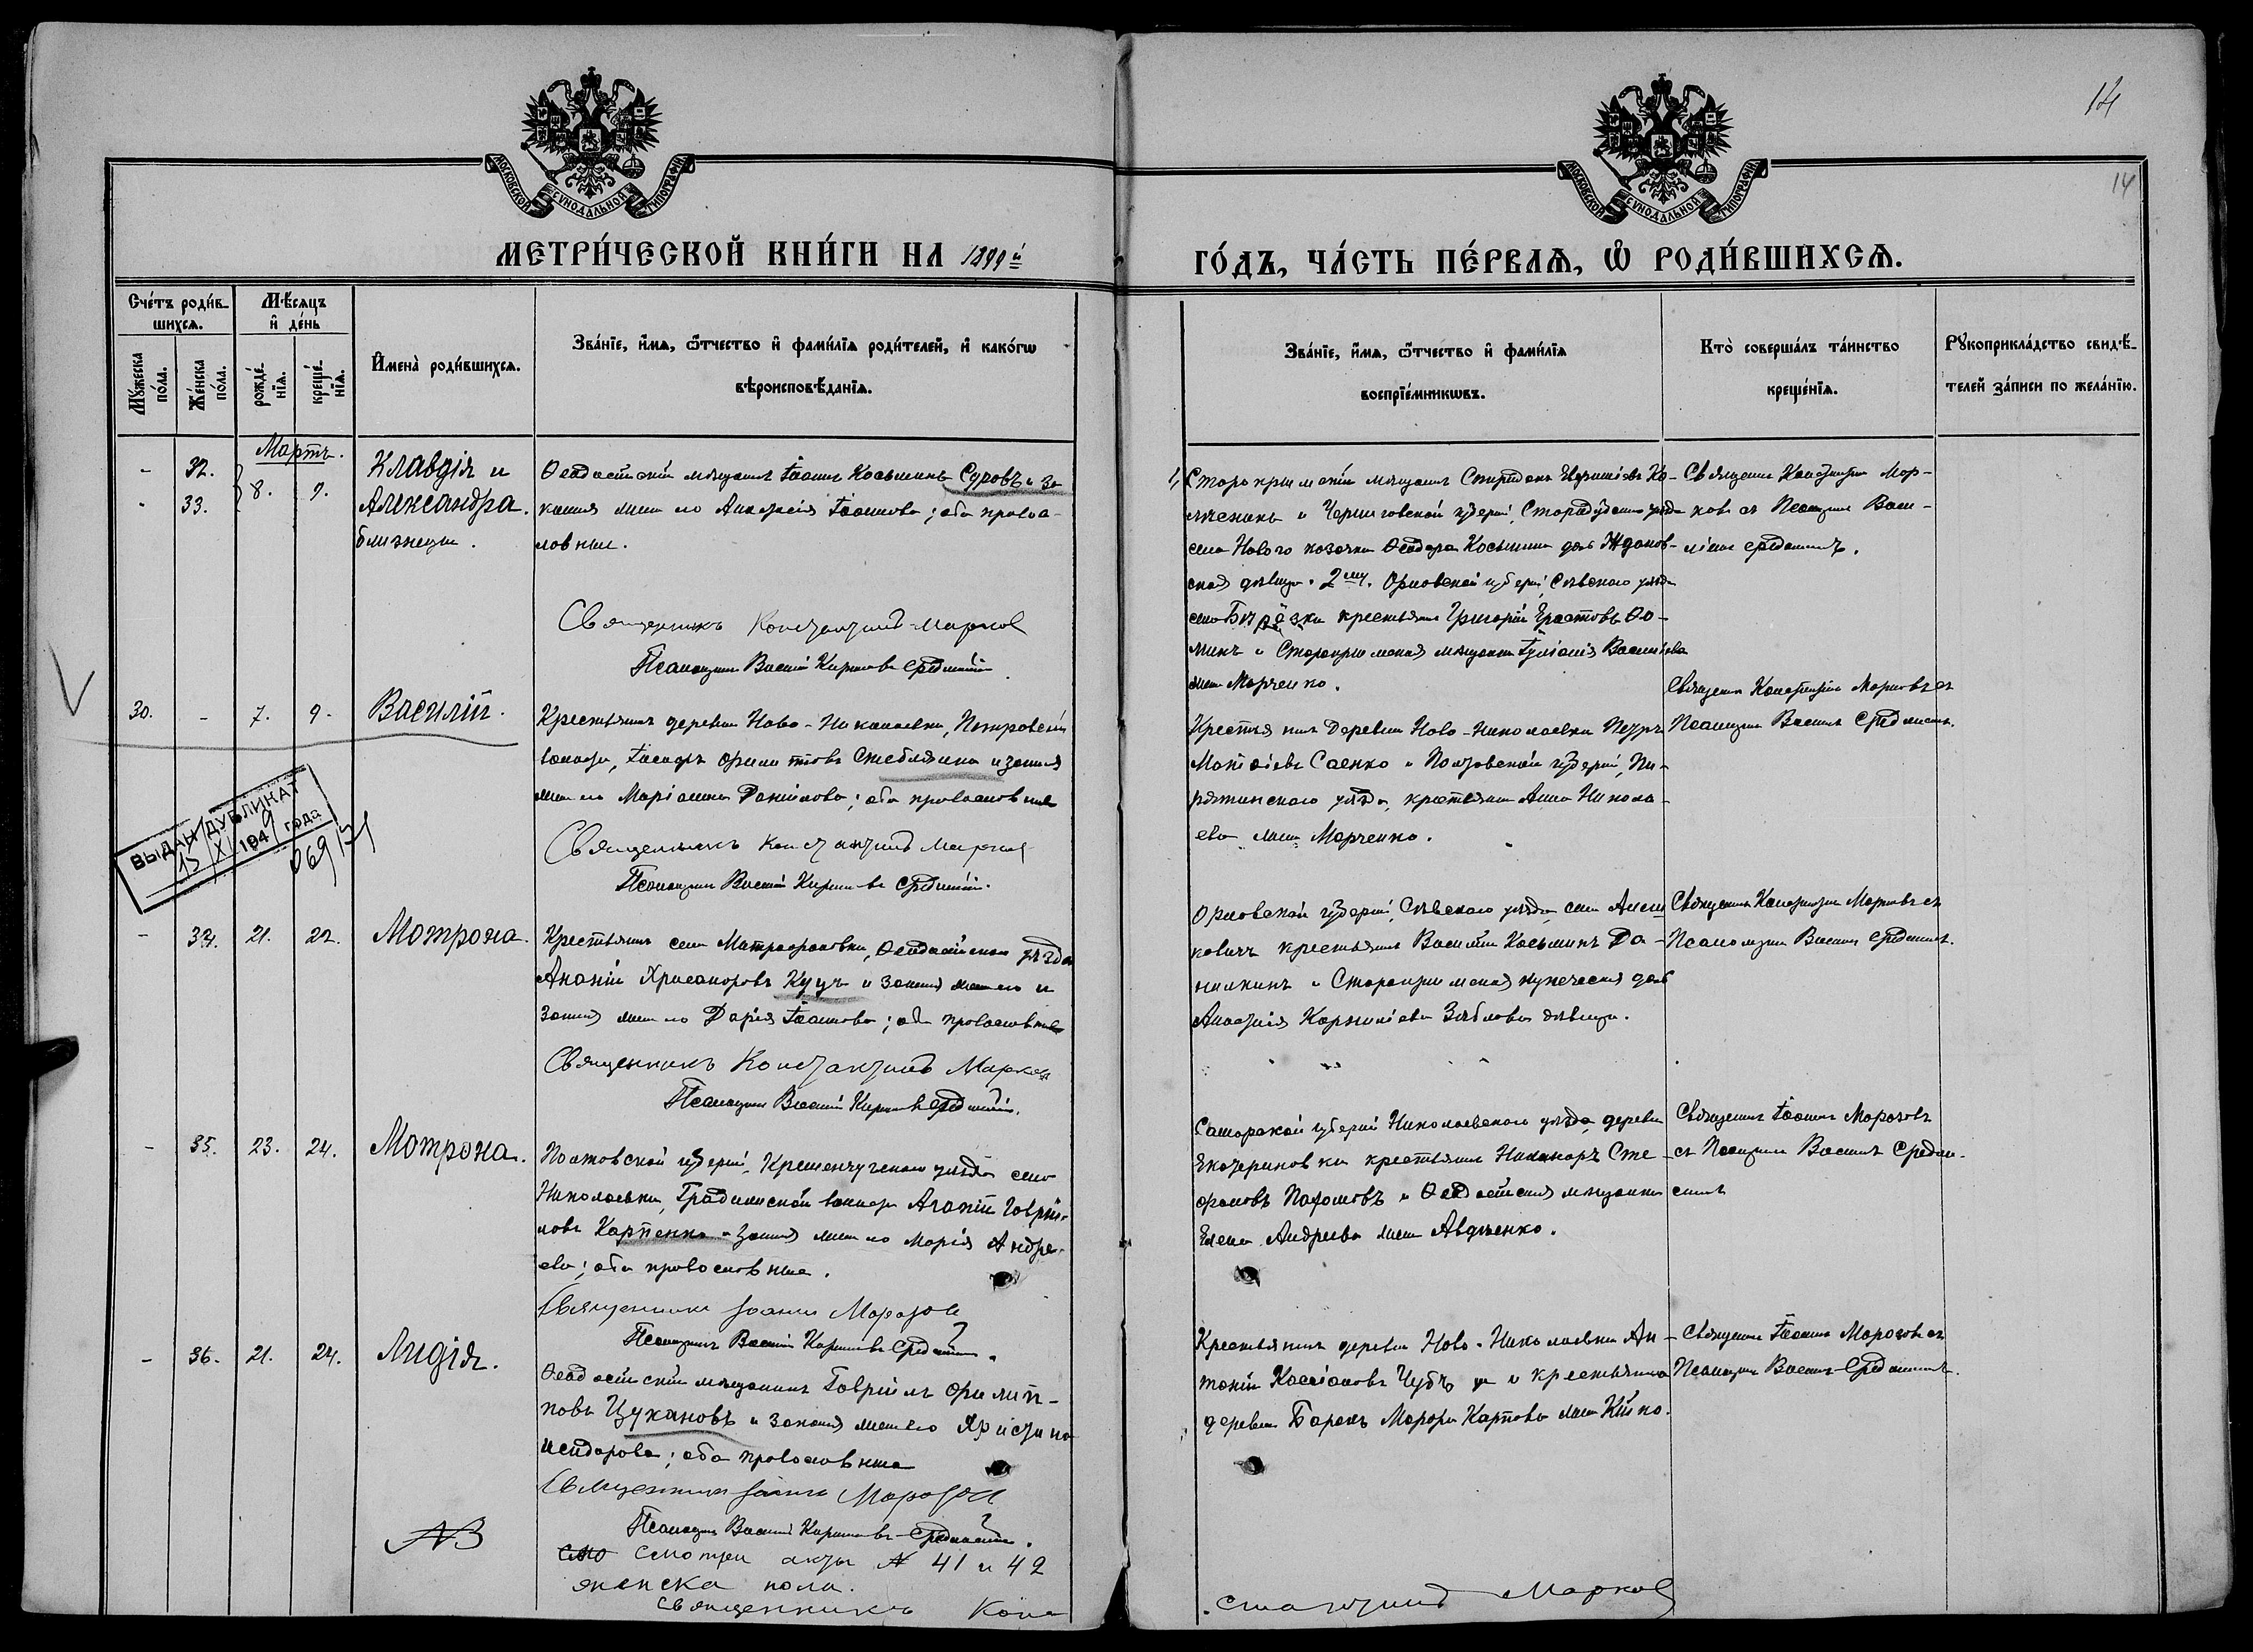 14
14
МОСКОВСКОЙ СУНОДАЛЬНОЙ ТИПОГРАФІИ
МОСКОВСКОЙ СУНОДАЛЬНОЙ ТИПОГРАФІИ
МЕТРИ́ЧЕСКОЙ КНИ́ГИ НА 1899й
ГО́ДЪ, ЧА́СТЬ ПЕ́РВАѦ, Ѡ РОДИ́ВШИХСѦ.
Сче́тъ роди́в-
шихсѧ.
Мѣ́сѧцъ
и҆ де́нь
Мꙋ́жеска по́ла.
Же́нска по́ла.
рожде́нїѧ.
креще́нїѧ.
И҆мена̀ роди́вшихсѧ.
Зва́нїе, и҆́мѧ, ѻ҆́тчество и҆ фами́лїѧ роди́телей, и҆ како́гѡ
вѣроисповѣ́данїѧ.
Зва́нїе, и҆́мѧ, ѻ҆́тчество и҆ фами́лїѧ
воспрїе́мникѡвъ.
Кто̀ соверша́лъ та́инство
креще́нїѧ.
Рꙋкоприкла́дство свидѣ́-
телей за́писи по жела́нїю.
Мартъ.
- 32. 8. 9. Клавдія и
- 33. Александра.
близнецы.
Ѳеодосійскій мѣщанинъ Іоаннъ Косьминъ Суровъ и за-
конная жена его Анастасія Іоаннова; оба право-
славные.
Священникъ Константинъ Марков
Псаломщикъ Василій Кириловъ Срединскій
Старокрымскій мѣщанинъ Спиридонъ
и Черниговской губерніи, Стародубскаго уѣзда
села Нового козачка Ѳеодора Косьмина дочь Жданов-
ская дѣвица. 2му. Орловской губерніи, Сѣвскаго уѣзда
села Берёзки крестьянинъ Григорій Ерастовъ Ѳо-
минъ и Старокрымская мѣщанка Іуліанія Васильева
жена Марченко.
Священникъ Константинъ Мар-
ковъ съ Псаломщик. Васи-
ліемъ Срединскимъ.
30. - 7. 9. Василій.
Крестьянинъ деревни Ново-Николаевки, Петровской
волости, Іосифъ Филиповъ Стеблянко и законная
жена его Маріанна Даніилова; оба православные
Священникъ Константинъ Марков
Псаломщикъ Василій Кириловъ Срединскій.
Крестьянинъ Деревни Ново-Николаевки Петръ
Матѳіевъ Саенко и Полтавской губерніи, Пи-
рятинскаго уѣзда, крестьянка Анна Никола-
ева жена Марченко.
Священникъ Константинъ Марковъ съ
Псаломщик. Василіемъ Срединскимъ.
ВЫДАН ДУБЛИКАТ
15 XI 1949 года
- 34. 21. 22. Мотрона.
Крестьянинъ села Митрофановки, Ѳеодосійскаго уѣзда
Ананій Хрисанфовъ Куцъ и законная жена его и
законная жена его Дарія Іоаннова; оба православные
Священникъ Константинъ Марков
Псаломщикъ Василій Кириловъ Срединскій.
Орловской губерніи, Сѣвскаго уѣзда, села
крестьянинъ Василій Косьминъ Да-
нилкинъ и Старокрымская купеческая дочь
Анастасія Корниліева Зяблова дѣвица.
Священникъ Константинъ Марковъ съ
Псаломщик. Василіемъ Срединскимъ.
- 35. 23. 24. Мотрона.
Полтавской губерніи, Кременчугскаго уѣзда села
Николаевки, Градижской волости Агапій Гаврі-
ловъ Карпенко и законная жена его Марія Андре-
ева; оба православные.
Священникъ Іоаннъ Морозов
Псаломщикъ Василій Кириловъ Срединскій.
Самарской губерніи Николаевскаго уѣзда, деревни
Екатериновки крестьянинъ Никаноръ Сте-
фановъ Пахомовъ и Ѳеодосійская мѣщанка
Елена Андреева жена Авдѣенко.
Священникъ Іоаннъ Морозовъ
съ Псаломщик. Василіемъ Средин-
скимъ
- 36. 21. 24. Лидія.
Ѳеодосійскій мѣщанинъ Гавріилъ Филип-
повъ Цукановъ и законная жена его Христина
Исидорова; оба православные
Священникъ Іоаннъ Морозов
Псаломщикъ Василій Кириловъ Срединскій.
Крестьянинъ деревни Ново-Николаевки Ан-
тоній Кассіановъ Чубъ и крестьянка
деревни Баракъ Марѳа Карпова жена Кійко.
Священникъ Іоаннъ Морозовъ съ
Псаломщик. Василіемъ Срединскимъ.
NB
смо смотри акты № 41 и 42
женска пола.
священникъ Кон-
стантинъ Марков